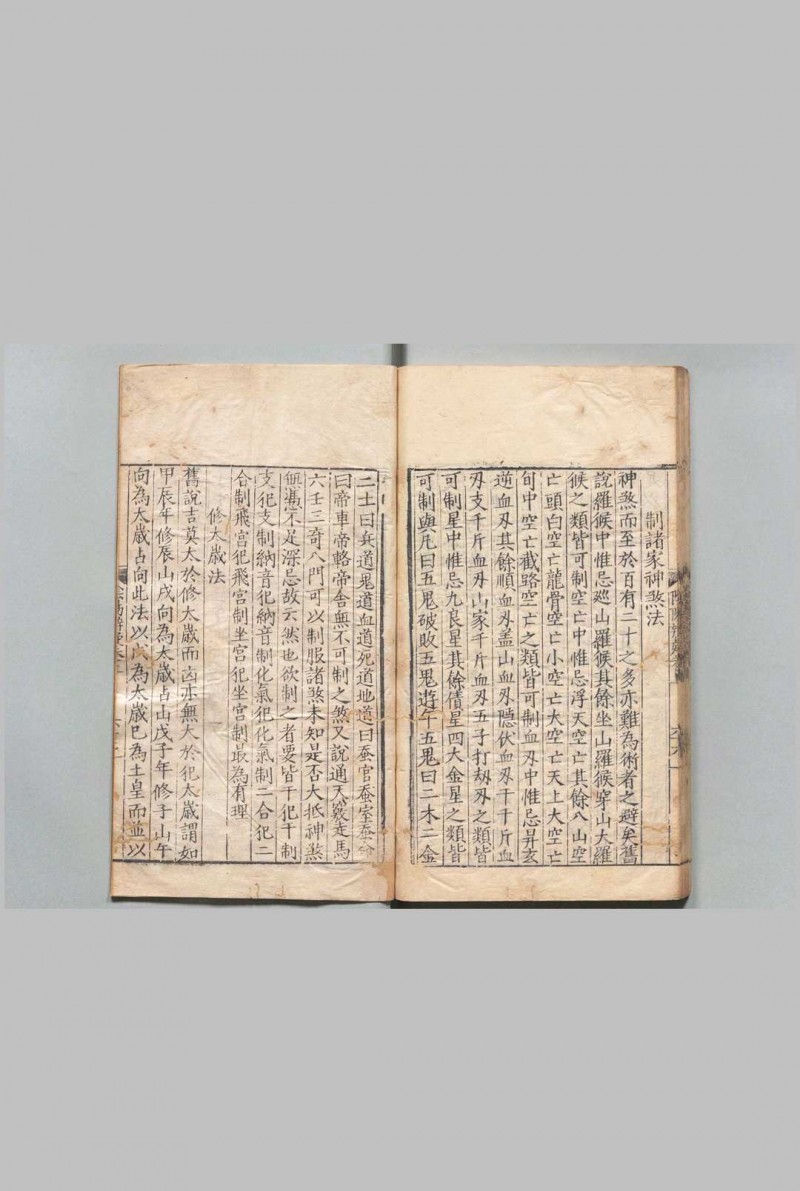 制諸家神煞法
神煞而至於百有二十之多亦難為術者之避矣舊
說羅候中惟忌巡山羅候其餘坐山羅候穿山大羅
候之類皆可制空亡中惟忌浮天空亡其餘八山空
亡頭白空亡龍骨空亡小空亡大空亡天上大空亡
旬中空亡截路空亡之類皆可制血刃中惟忌昇玄
逆血刃其餘順血刃盖山血刃隱伏血刃千斤血
刃支千斤血刃山家千斤血刃五子打刼刃之類皆
可制星中惟忌九良星其餘債星四大金星之類皆
可制與凡曰五鬼破敗五鬼遊年五鬼曰二木二金
二土曰兵道鬼道血道死道地道曰蚕官蚕室蚕命
曰帝車帝輅帝舍無不可制之煞又說通天竅走馬
六壬三奇八門可以制服諸煞未知是否大抵神煞
無慿不足深忌故云然也欲制之者要皆干犯干制
支犯支制納音犯納音制化氣犯化氣制二合犯二
合制飛宫犯飛宫制坐宫犯坐宫制最為有理
修大歲法
舊說吉莫太於修太歲而凶亦無大於犯太歲謂如
甲辰年修辰山戌向為太歲占山戊子年修子山午
向為太歲占向此法以戊為太歲巳為土皇而並以